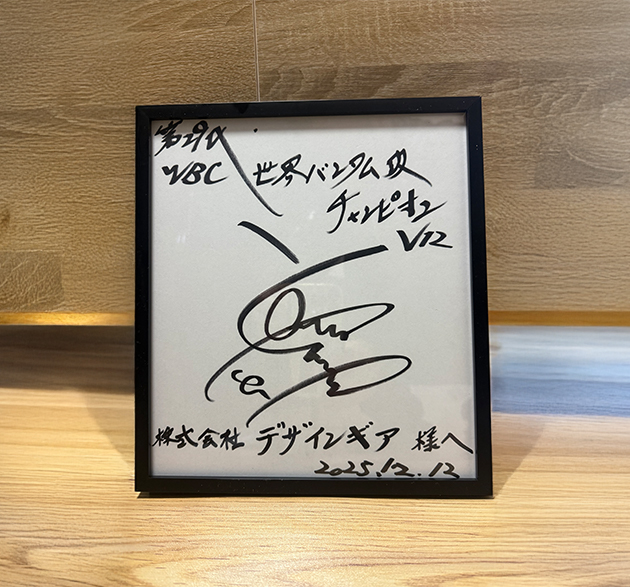 第29代
WBC 世界バンタム級
チャンピオン
V12
株式会社 デザインギア 様へ
2025.12.12